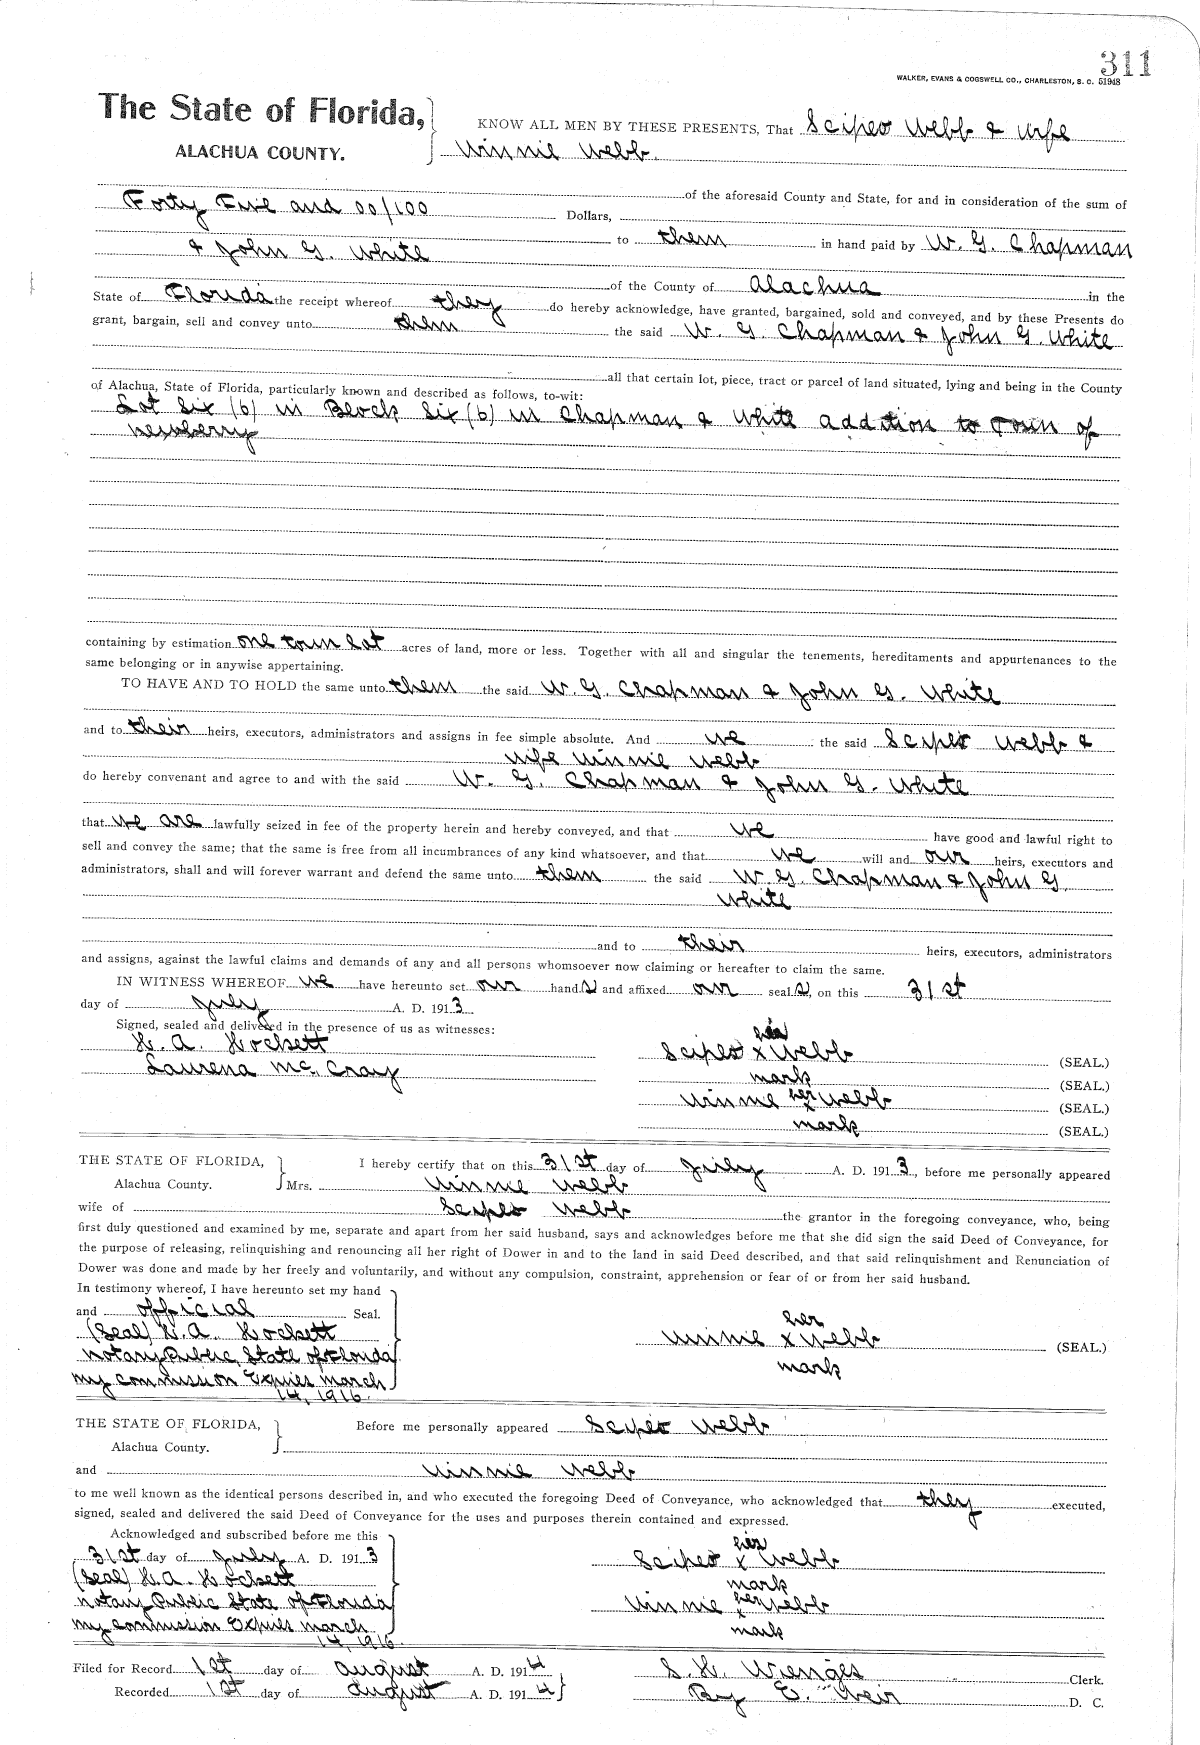 311
WALKER, EVANS & COGSWELL CO., CHARLESTON, S. C. 51948
The State of Florida,
ALACHUA COUNTY.
KNOW ALL MEN BY THESE PRESENTS, That Scipeo Webb & wife
Winnie Webb.
of the aforesaid County and State, for and in consideration of the sum of
Forty Five and 00/100 Dollars,
to them in hand paid by W. G. Chapman
& John G. White
of the County of Alachua in the
State of Florida the receipt whereof they do hereby acknowledge, have granted, bargained, sold and conveyed, and by these Presents do
grant, bargain, sell and convey unto them the said W. G. Chapman & John G. White
all that certain lot, piece, tract or parcel of land situated, lying and being in the County
of Alachua, State of Florida, particularly known and described as follows, to-wit:
Lot Six (6) in Block Six (6) in Chapman & White addition to Town of
Newberry
containing by estimation one town lot acres of land, more or less. Together with all and singular the tenements, hereditaments and appurtenances to the
same belonging or in anywise appertaining.
TO HAVE AND TO HOLD the same unto them the said W. G. Chapman & John G. White
and to their heirs, executors, administrators and assigns in fee simple absolute. And we the said Scipeo Webb &
wife Winnie Webb
do hereby convenant and agree to and with the said W. G. Chapman & John G. White
that we are lawfully seized in fee of the property herein and hereby conveyed, and that we have good and lawful right to
sell and convey the same; that the same is free from all incumbrances of any kind whatsoever, and that we will and our heirs, executors and
administrators, shall and will forever warrant and defend the same unto them the said W. G. Chapman & John G.
White
and to their heirs, executors, administrators
and assigns, against the lawful claims and demands of any and all persons whomsoever now claiming or hereafter to claim the same.
IN WITNESS WHEREOF we have hereunto set our hands and affixed our seals, on this 31st
day of July A. D. 1913
Signed, sealed and delivered in the presence of us as witnesses:
H. A. Hockett
Laurena McCray
his
Scipeo x Webb (SEAL.)
mark (SEAL.)
Winnie her x Webb (SEAL.)
mark (SEAL.)
THE STATE OF FLORIDA,
Alachua County.
I hereby certify that on this 31st day of July A. D. 1913, before me personally appeared
Mrs. Winnie Webb
wife of Scipeo Webb the grantor in the foregoing conveyance, who, being
first duly questioned and examined by me, separate and apart from her said husband, says and acknowledges before me that she did sign the said Deed of Conveyance, for
the purpose of releasing, relinquishing and renouncing all her right of Dower in and to the land in said Deed described, and that said relinquishment and Renunciation of
Dower was done and made by her freely and voluntarily, and without any compulsion, constraint, apprehension or fear of or from her said husband.
In testimony whereof, I have hereunto set my hand
and official Seal.
(Seal) H. A. Hockett
Notary Public State of Florida
my commission Expires March
14, 1916.
her
Winnie x Webb (SEAL.)
mark
THE STATE OF FLORIDA,
Alachua County.
Before me personally appeared Scipeo Webb
and Winnie Webb
to me well known as the identical persons described in, and who executed the foregoing Deed of Conveyance, who acknowledged that they executed,
signed, sealed and delivered the said Deed of Conveyance for the uses and purposes therein contained and expressed.
Acknowledged and subscribed before me this
31st day of July A. D. 1913
(Seal) H. A. Hockett
Notary Public State of Florida
my commission Expires March
14, 1916
his
Scipeo x Webb
mark
Winnie her x Webb
mark
Filed for Record 1st day of August A. D. 1914
Recorded 1st day of August A. D. 1914
S. H. Wienges Clerk.
By E. Weir D. C.